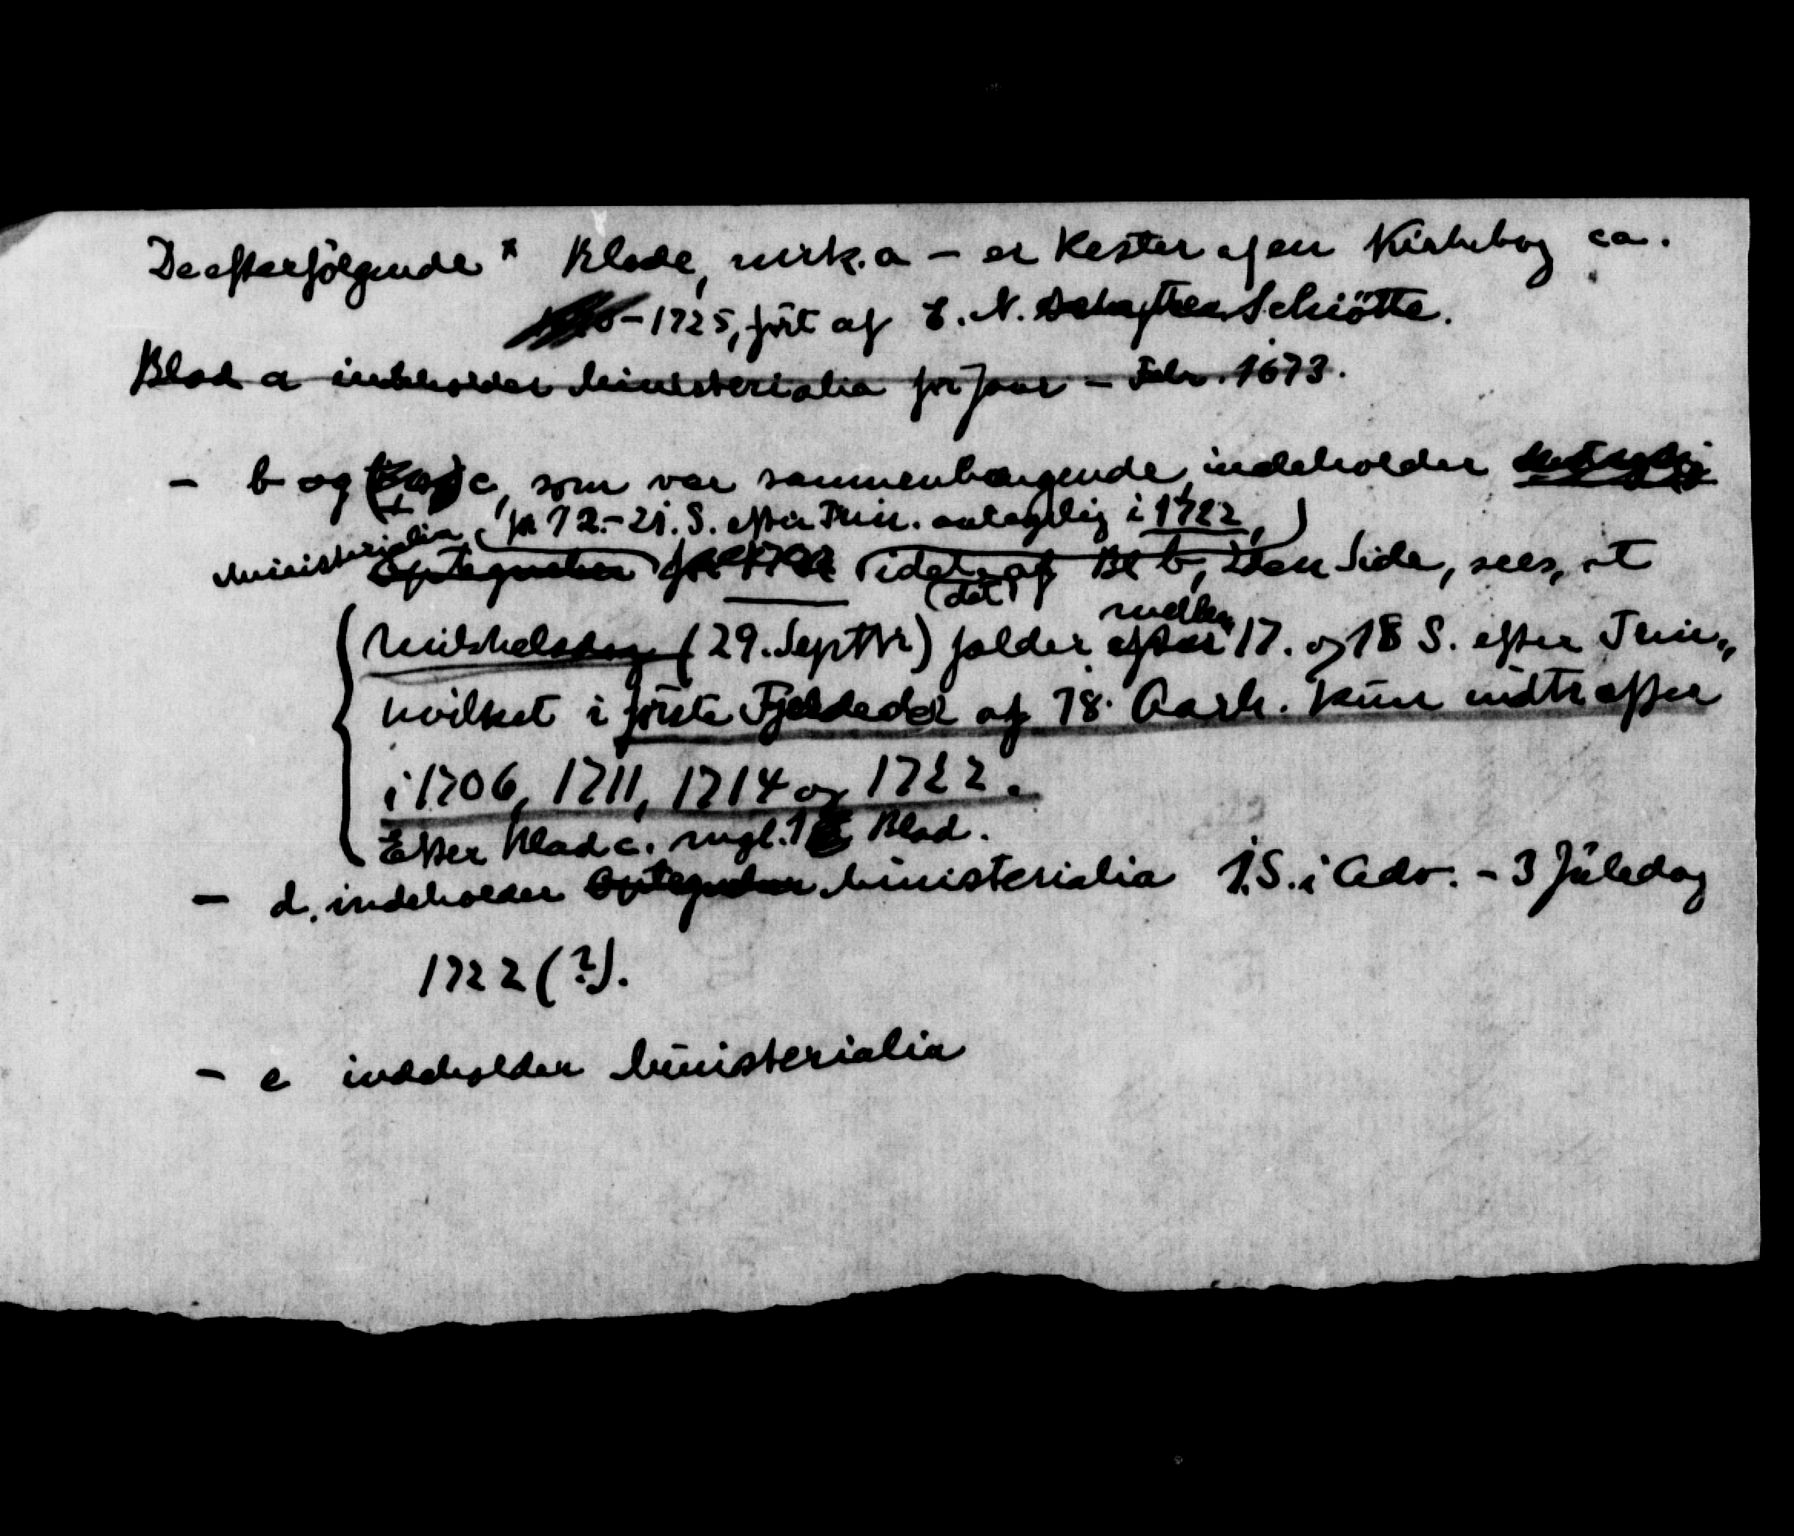 De efterfølgende x Blade, mrk. a – er Rester af en Kirkebog ca.
– 1725, ført af E. N. Schiøtte.
Blad a indeholder Ministerialia for Jan – Febr. 1673.
– b og c, som var sammenhængende, indeholder
Ministerialia (fra 12.–21. S. efter Trin. antagelig i 1722,)
(idet af Bl b, 2den Side, sees, at
(det)
Mikkelsdag (29. Septbr) falder mellem 17. og 18 S. efter Trin.,
hvilket i første Fjerdedel af 18. Aarh. kun indtræffer
i 1706, 1711, 1714 og 1722.
Efter Blad c. mgl. 1 Blad.
– d. indeholder Ministerialia 1. S. i Adv. – 3 Juledag
1722 (?).
– e indeholder Ministerialia